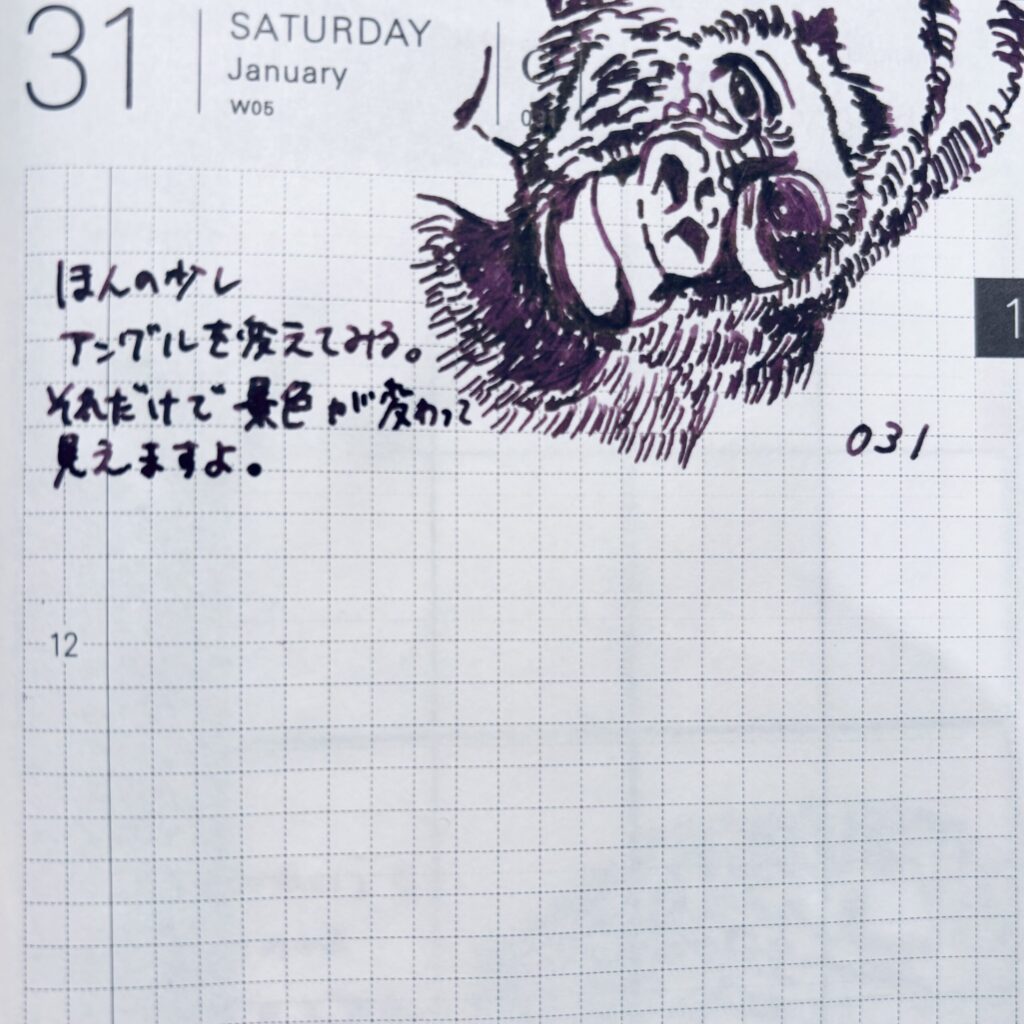 31
SATURDAY
January
W05
ほんの少し
アングルを変えてみる。
それだけで景色が変わって
見えますよ。
031
1
12